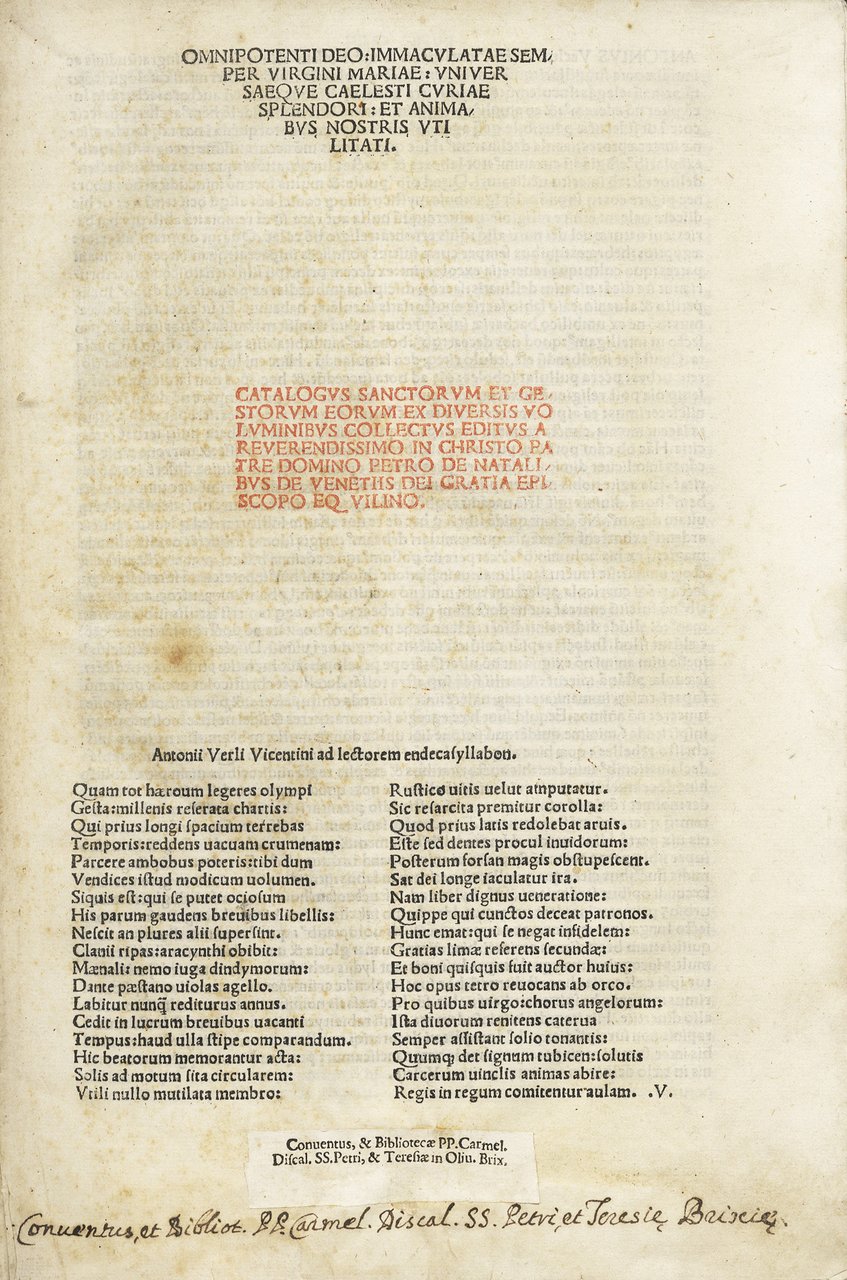 OMNIPOTENTI DEO: IMMACVLATAE SEM/
PER VIRGINI MARIAE: VNIVER
SAEQVE CAELESTI CVRIAE
SPLENDORI: ET ANIMA/
BVS NOSTRIS VTI
LITATI.
CATALOGVS SANCTORVM ET GE/
STORVM EORVM EX DIVERSIS VO
LVMINIBVS COLLECTVS EDITVS A
REVERENDISSIMO IN CHRISTO PA
TRE DOMINO PETRO DE NATALI/
BVS DE VENETIIS DEI GRATIA EPI/
SCOPO EQVILINO.
Antonii Verli Vicentini ad lectorem endecaſyllabon.
Quam tot hæroum legeres olympi
Geſta: millenis reſerata chartis:
Qui prius longi ſpacium terrebas
Temporis: reddens uacuam crumenam:
Parcere ambobus poteris: tibi dum
Vendices iſtud modicum uolumen.
Siquis eſt: qui ſe putet ocioſum
His parum gaudens breuibus libellis:
Neſcit an plures alii ſuperſint.
Clanii ripas: aracynthi obibit:
Mænali: nemo iuga dindymorum:
Dante pæſtano uiolas agello.
Labitur nunq̃ rediturus annus.
Cedit in lucrum breuibus uacanti
Tempus: haud ulla ſtipe comparandum.
Hic beatorum memorantur acta:
Solis ad motum ſita circularem:
Vtili nullo mutilata membro:
Ruſtico uitis uelut amputatur.
Sic reſarcita premitur corolla:
Quod prius latis redolebat aruis.
Eſte ſed dentes procul inuidorum:
Poſterum forſan magis obſtupeſcent.
Sat dei longe iaculatur ira.
Nam liber dignus ueneratione:
Quippe qui cunctos deceat patronos.
Hunc emat: qui ſe negat infidelem:
Gratias limæ referens ſecundæ:
Et boni quiſquis fuit auctor huius:
Hoc opus tetro reuocans ab orco.
Pro quibus uirgo: chorus angelorum:
Iſta diuorum renitens caterua
Semper aſſiſtant ſolio tonantis:
Quumq; det ſignum tubicen: ſolutis
Carcerum uinclis animas abire:
Regis in regum comitentur aulam. .V.
Conuentus, & Bibliotecæ PP. Carmel.
Diſcal. SS. Petri, & Tereſiæ in Oliu. Brix.
Conuentus, et Bibliot. PP. Carmel. Discal. SS. Petri, et Teresię Brixię.